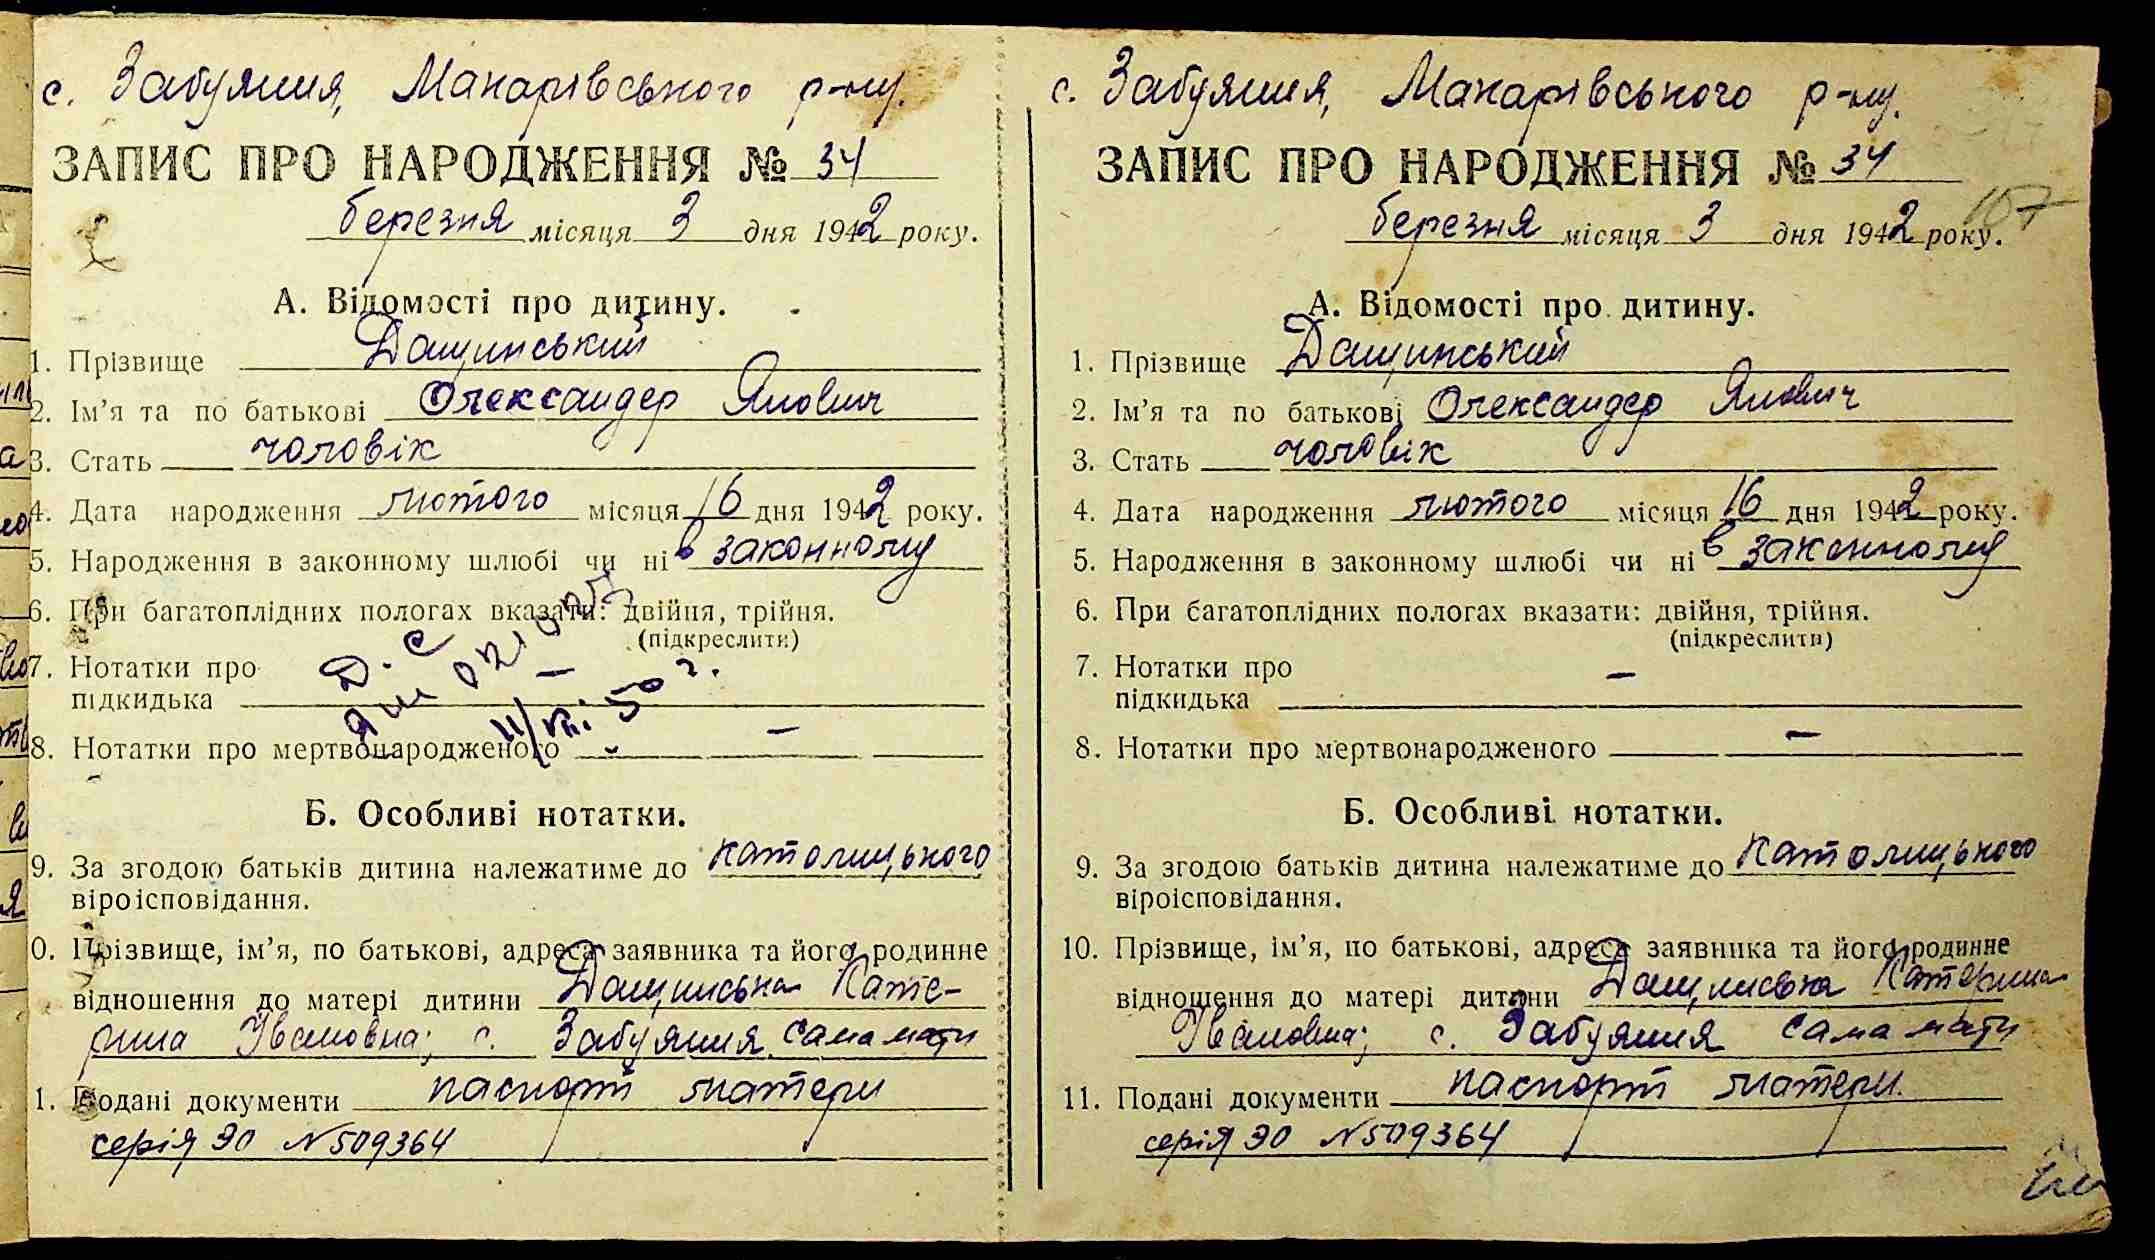 с. Забуяння, Макарівського р-ну.
ЗАПИС ПРО НАРОДЖЕННЯ № 34
березня місяця 3 дня 1942 року.
А. Відомості про дитину.
1. Прізвище Дащинський
2. Ім'я та по батькові Олександер Янович
3. Стать чоловік
4. Дата народження лютого місяця 16 дня 1942 року.
5. Народження в законному шлюбі чи ні в законному
6. При багатоплідних пологах вказати: двійня, трійня.
(підкреслити)
7. Нотатки про
підкидька —
8. Нотатки про мертвонародженого —
Б. Особливі нотатки.
9. За згодою батьків дитина належатиме до католицького
віроісповідання.
0. Прізвище, ім'я, по батькові, адреса заявника та його родинне
відношення до матері дитини Дащинська Кате-
рина Івановна; с. Забуяння сама мати
1. Подані документи паспорт матери
серія ЭО № 509364
с. Забуяння, Макарівського р-ну.
ЗАПИС ПРО НАРОДЖЕННЯ № 34
107
березня місяця 3 дня 1942 року.
А. Відомості про дитину.
1. Прізвище Дащинський
2. Ім'я та по батькові Олександер Янович
3. Стать чоловік
4. Дата народження лютого місяця 16 дня 1942 року.
5. Народження в законному шлюбі чи ні в законному
6. При багатоплідних пологах вказати: двійня, трійня.
(підкреслити)
7. Нотатки про
підкидька —
8. Нотатки про мертвонародженого —
Б. Особливі нотатки.
9. За згодою батьків дитина належатиме до католицького
віроісповідання.
10. Прізвище, ім'я, по батькові, адреса заявника та його родинне
відношення до матері дитини Дащинська Катерина
Івановна; с. Забуяння сама мати
11. Подані документи паспорт матери.
серія ЭО № 509364